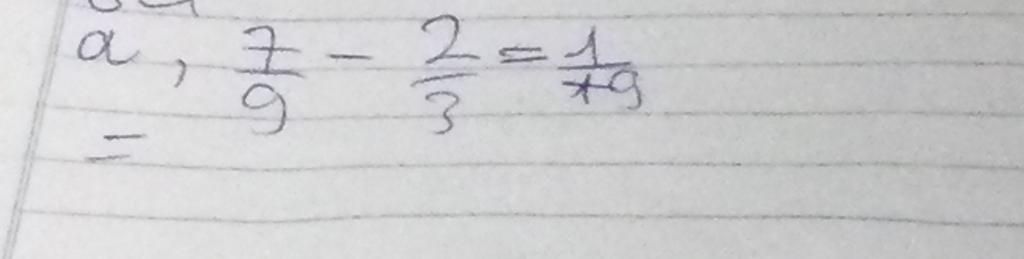 a, 7/9 - 2/3 = 1/9
=